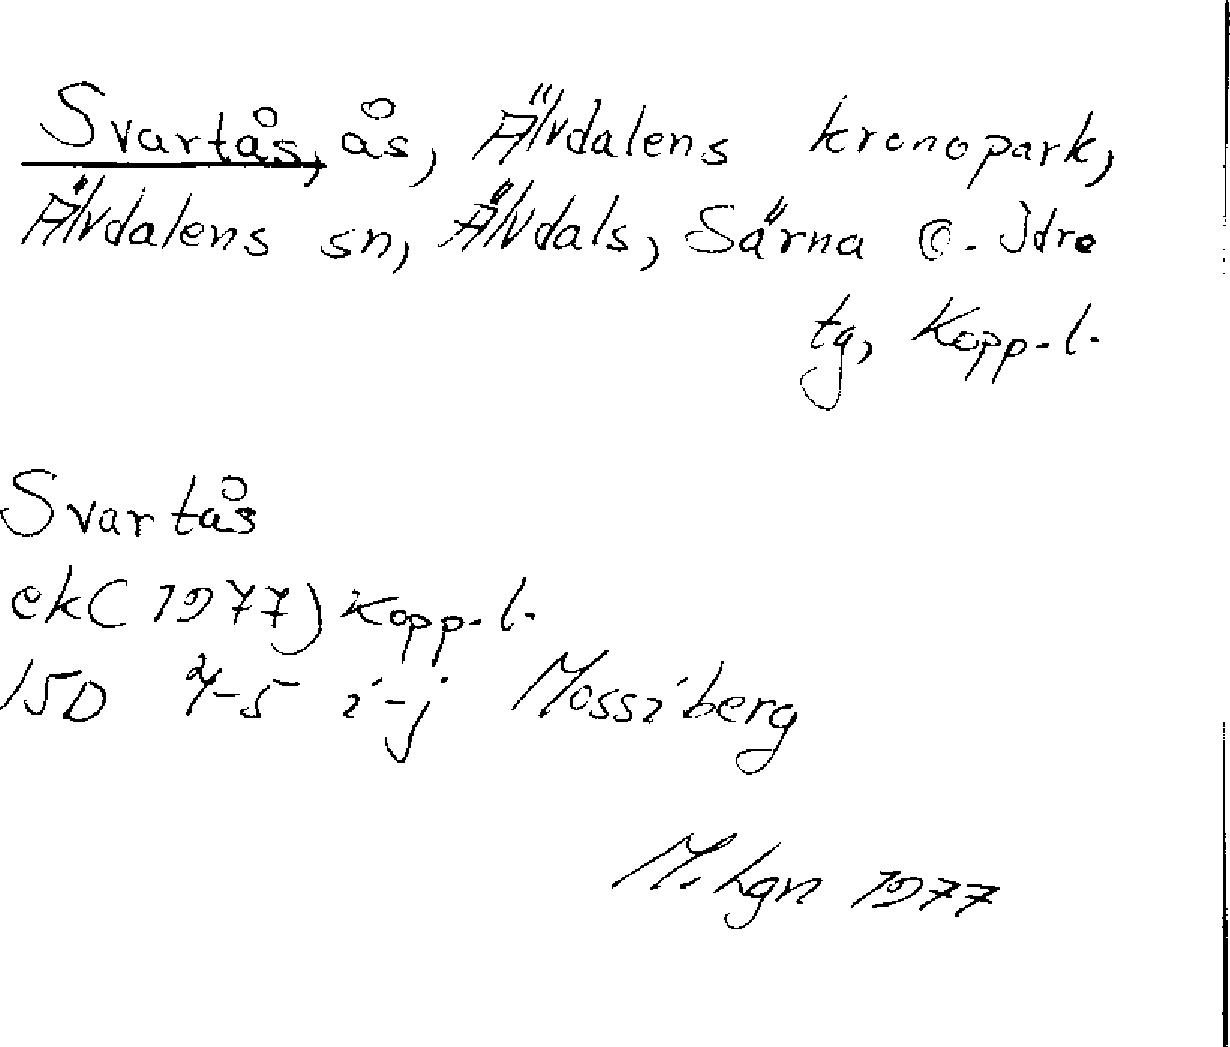 Svartås, ås, Älvdalens kronopark,
Älvdalens sn, Älvdals, Särna o. Idre
tg, Kopp.l.
Svartås
ek(1977) Kopp.l.
15D 4-5 i-j Mossiberg
M.Lgn 1977